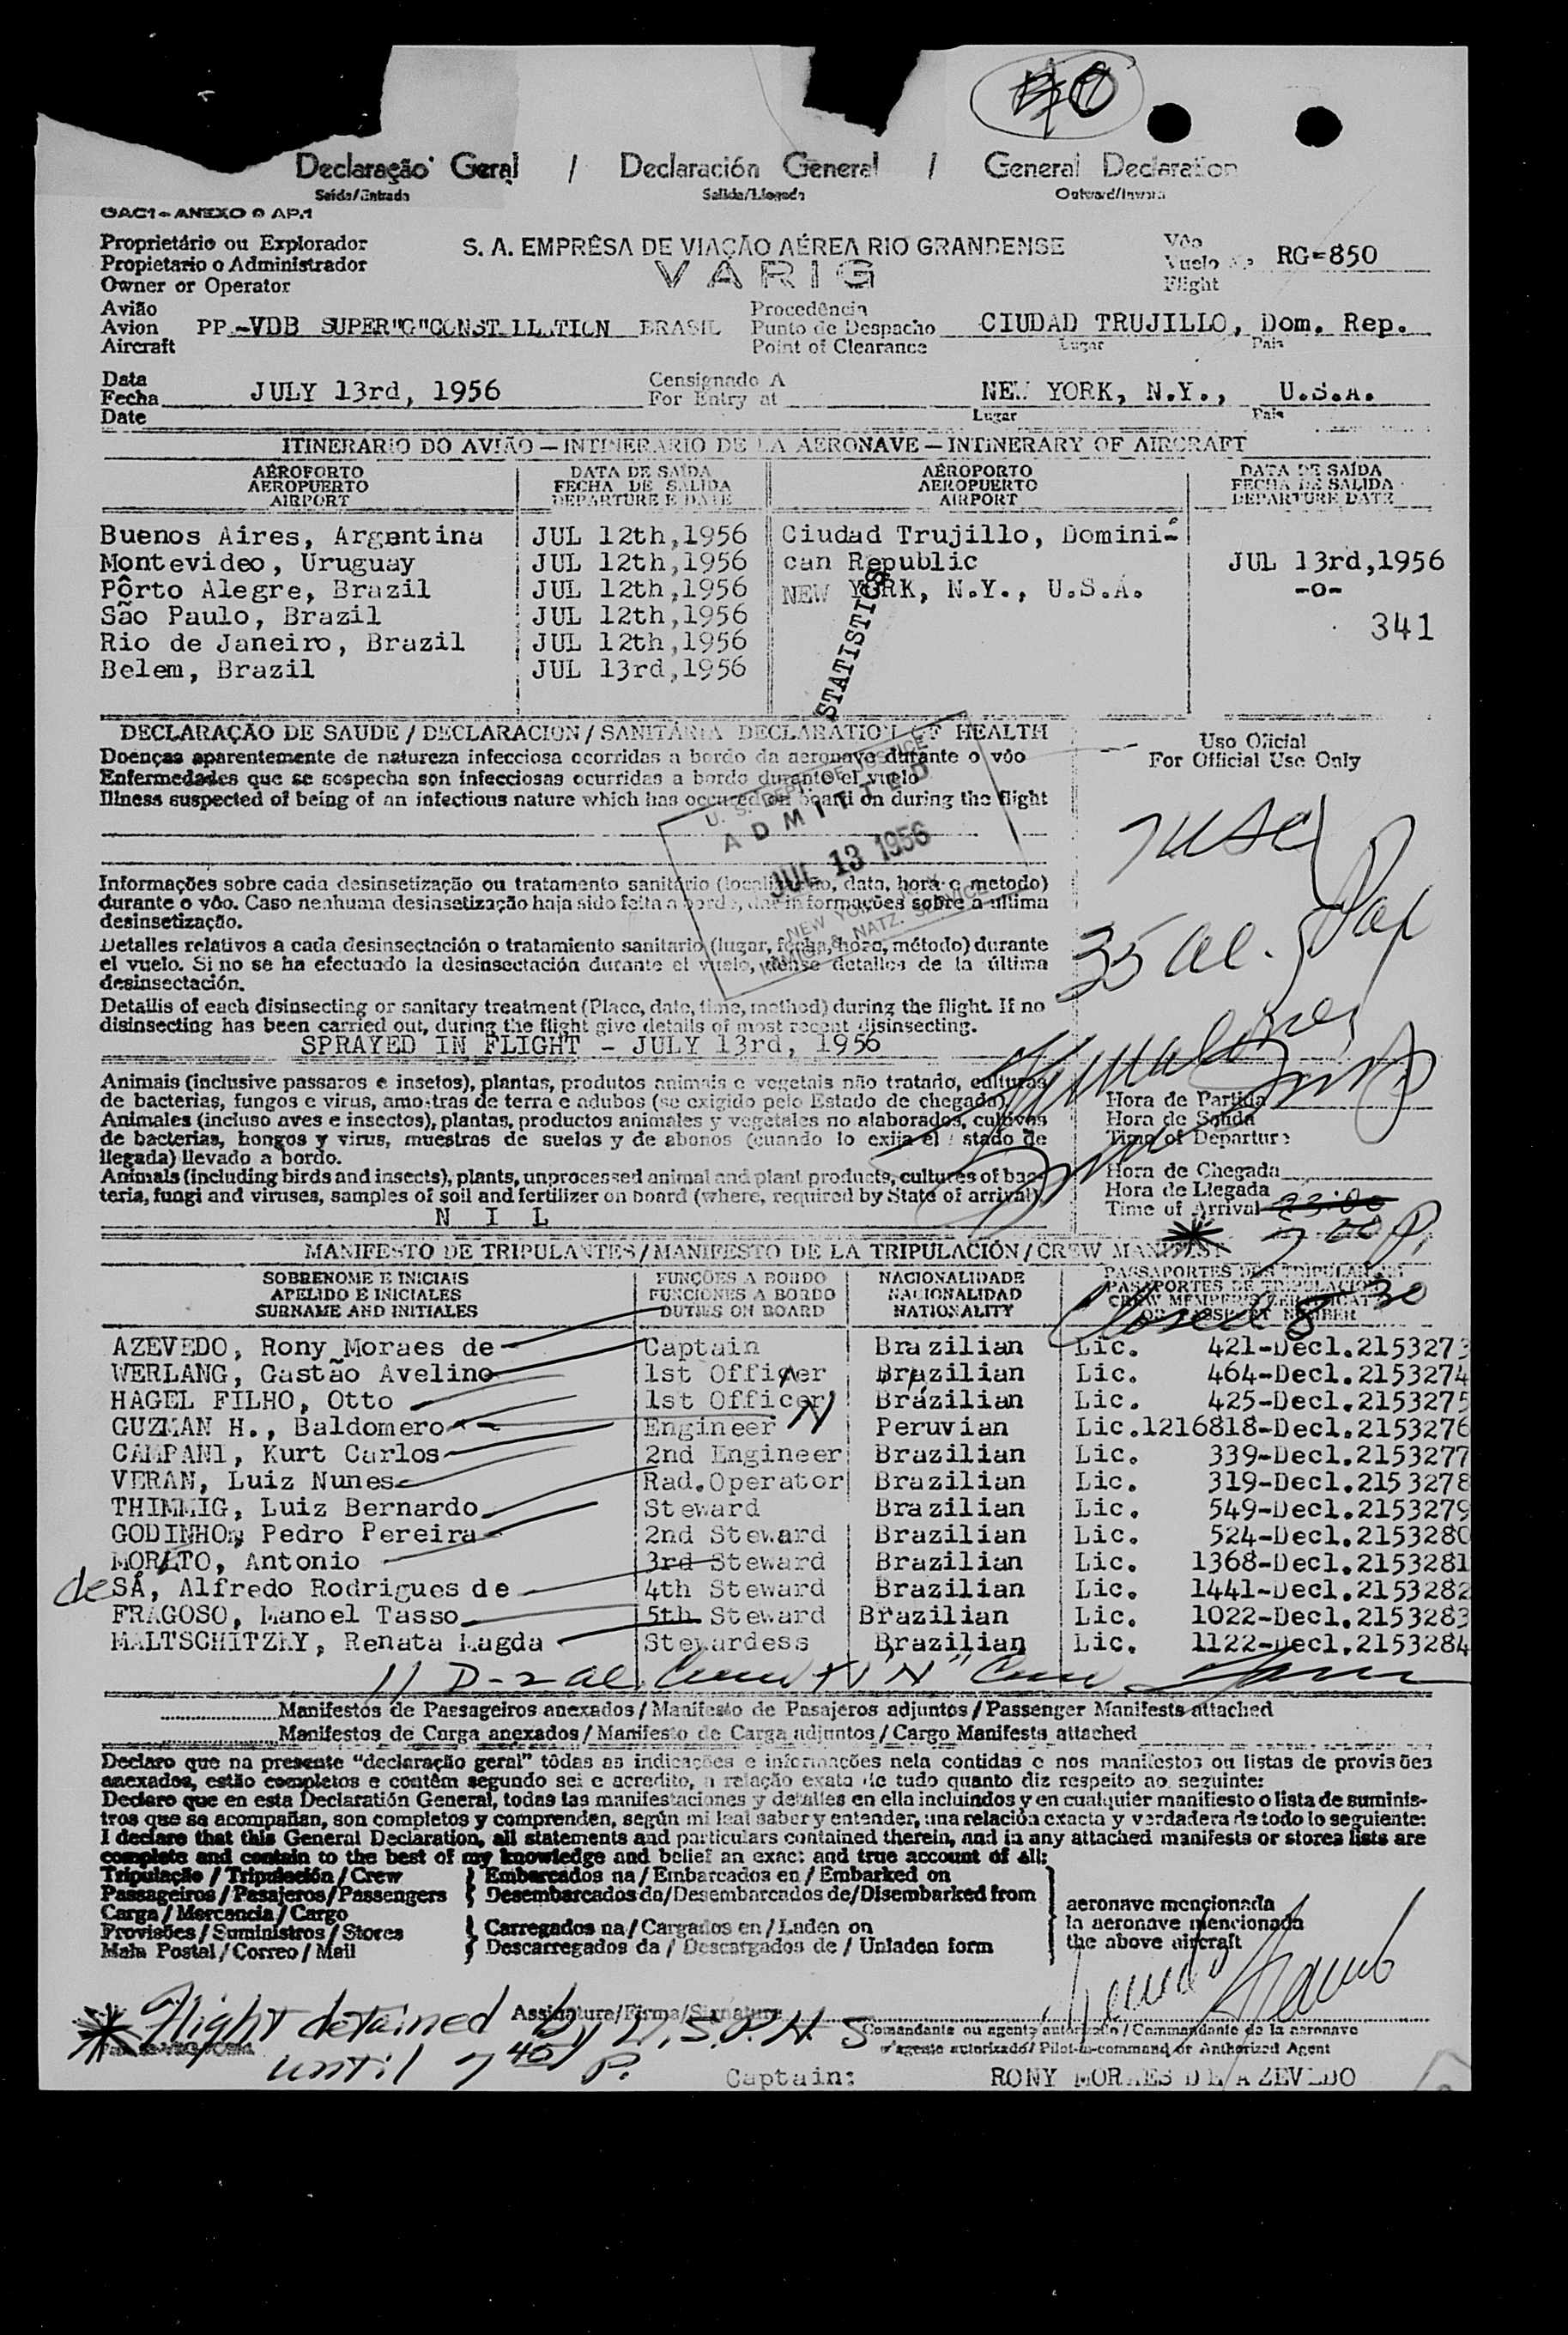 Declaração Geral / Declaración General / General Declaration
Saída/Entrada Salida/Llegada Outward/Inward
OAC1-ANEXO 9 AP.1
Proprietário ou Explorador
Propietario o Administrador
Owner or Operator
S. A. EMPRÊSA DE VIAÇÃO AÉREA RIO GRANDENSE
VARIG
Vôo
Vuelo
Flight
RG-850
Avião
Avion
Aircraft
PP-VDB SUPER"G"CONST LL TION BRASIL
Procedência
Punto de Despacho
Point of Clearance
CIUDAD TRUJILLO, Dom. Rep.
Lugar País
Data
Fecha
Date
JULY 13rd, 1956
Censignado A
For Entry at
NEW YORK, N.Y., U.S.A.
Lugar País
ITINERARIO DO AVIÃO — INTINERARIO DE LA AERONAVE — INTINERARY OF AIRCRAFT
AÉROPORTO
AEROPUERTO
AIRPORT
DATA DE SAÍDA
FECHA DE SALIDA
DEPARTURE E DATE
AÉROPORTO
AEROPUERTO
AIRPORT
DATA DE SAÍDA
FECHA DE SALIDA
DEPARTURE DATE
Buenos Aires, Argentina JUL 12th,1956 Ciudad Trujillo, Domini-
Montevideo, Uruguay JUL 12th,1956 can Republic JUL 13rd,1956
Pôrto Alegre, Brazil JUL 12th,1956 NEW YORK, N.Y., U.S.A. -o-
São Paulo, Brazil JUL 12th,1956 341
Rio de Janeiro, Brazil JUL 12th,1956
Belem, Brazil JUL 13rd,1956
STATISTICS
DECLARAÇÃO DE SAUDE / DECLARACION / SANITÁRIA DECLARATION OF HEALTH
Doenças aparentemente de natureza infecciosa ocorridas a bordo da aeronave durante o vôo
Enfermedades que se sospecha son infecciosas ocurridas a bordo durante el vuelo
Illness suspected of being of an infectious nature which has occured on board on during the flight
U. S. DEPT. OF JUSTICE
ADMITTED
JUL 13 1956
NEW YORK, N.Y.
IMMIG. & NATZ. SERVICE
Uso Oficial
For Official Use Only
Informações sobre cada desinsetização ou tratamento sanitário (localização, data, hora e metodo)
durante o vôo. Caso nenhuma desinsetização haja sido feita a bordo, dar informações sobre a ultima
desinsetização.
Detalles relativos a cada desinsectación o tratamiento sanitario (lugar, fecha, hora, método) durante
el vuelo. Si no se ha efectuado la desinsectación durante el vuelo, dense detalles de la última
desinsectación.
Detallis of each disinsecting or sanitary treatment (Place, date, time, method) during the flight. If no
disinsecting has been carried out, during the flight give details of most recent disinsecting.
SPRAYED IN FLIGHT - JULY 13rd, 1956
Animais (inclusive passaros e insetos), plantas, produtos animais e vegetais não tratado, culturas
de bacterias, fungos e virus, amostras de terra e adubos (se exigido pelo Estado de chegada).
Animales (incluso aves e insectos), plantas, productos animales y vegetales no alaborados, cultivos
de bacterias, hongos y virus, muestras de suelos y de abonos (cuando lo exija el Estado de
llegada) llevado a bordo.
Animals (including birds and insects), plants, unprocessed animal and plant products, cultures of bac-
teria, fungi and viruses, samples of soil and fertilizer on board (where, required by State of arrival)
N I L
35 al.
Hora de Partida
Hora de Salida
Time of Departure
Hora de Chegada
Hora de Llegada
Time of Arrival 23:00
7 00 P.
Closed 8 30
MANIFESTO DE TRIPULANTES / MANIFESTO DE LA TRIPULACIÓN / CREW MANIFEST
SOBRENOME E INICIAIS
APELIDO E INICIALES
SURNAME AND INITIALES
FUNÇÕES A BORDO
FUNCIONES A BORDO
DUTIES ON BOARD
NACIONALIDADE
NACIONALIDAD
NATIONALITY
AZEVEDO, Rony Moraes de Captain Brazilian Lic. 421-Decl.2153273
WERLANG, Gastão Avelino 1st Officer Brazilian Lic. 464-Decl.2153274
HAGEL FILHO, Otto 1st Officer Brazilian Lic. 425-Decl.2153275
GUZMAN H., Baldomero Engineer N Peruvian Lic.1216818-Decl.2153276
CAMPANI, Kurt Carlos 2nd Engineer Brazilian Lic. 339-Decl.2153277
VERAN, Luiz Nunes Rad.Operator Brazilian Lic. 319-Decl.2153278
THIMMIG, Luiz Bernardo Steward Brazilian Lic. 549-Decl.2153279
GODINHO, Pedro Pereira 2nd Steward Brazilian Lic. 524-Decl.2153280
MORATO, Antonio 3rd Steward Brazilian Lic. 1368-Decl.2153281
de SÁ, Alfredo Rodrigues de 4th Steward Brazilian Lic. 1441-Decl.2153282
FRAGOSO, Manoel Tasso 5th Steward Brazilian Lic. 1022-Decl.2153283
MALTSCHITZKY, Renata Magda Stewardess Brazilian Lic. 1122-Decl.2153284
11 D-2 al. Crew + 1 "N" Crew
Manifestos de Passageiros anexados / Manifesto de Pasajeros adjuntos / Passenger Manifests attached
Manifestos de Carga anexados / Manifesto de Carga adjuntos / Cargo Manifests attached
Declaro que na presente "declaração geral" tôdas as indicações e informações nela contidas e nos manifestos ou listas de provisões
anexados, estão completos e contêm segundo sei e acredito, a relação exata de tudo quanto diz respeito ao seguinte:
Declaro que en esta Declaratión General, todas las manifestaciones y detalles en ella incluindos y en cualquier manifiesto o lista de suminis-
tros que se acompañan, son completos y comprenden, según mi leal saber y entender, una relación exacta y verdadera de todo lo seguiente:
I declare that this General Declaration, all statements and particulars contained therein, and in any attached manifests or stores lists are
complete and contain to the best of my knowledge and belief an exact and true account of all:
Tripulação / Tripulación / Crew
Passageiros / Pasajeros / Passengers
Carga / Mercancia / Cargo
Provisões / Suministros / Stores
Mala Postal / Correo / Mail
Embarcados na / Embarcados en / Embarked on
Desembarcados da / Desembarcados de / Disembarked from
Carregados na / Cargados en / Laden on
Descarregados da / Descargados de / Unladen form
aeronave mencionada
la aeronave mencionada
the above aircraft
Assinatura/Firma/Signature
Flight detained by U.S.P.H.S
until 7 40 P.
Comandante ou agente autorizado / Commandante de la aeronave
o agente autorizado / Pilot-in-command or Anthorized Agent
Captain: RONY MORAES DE AZEVEDO